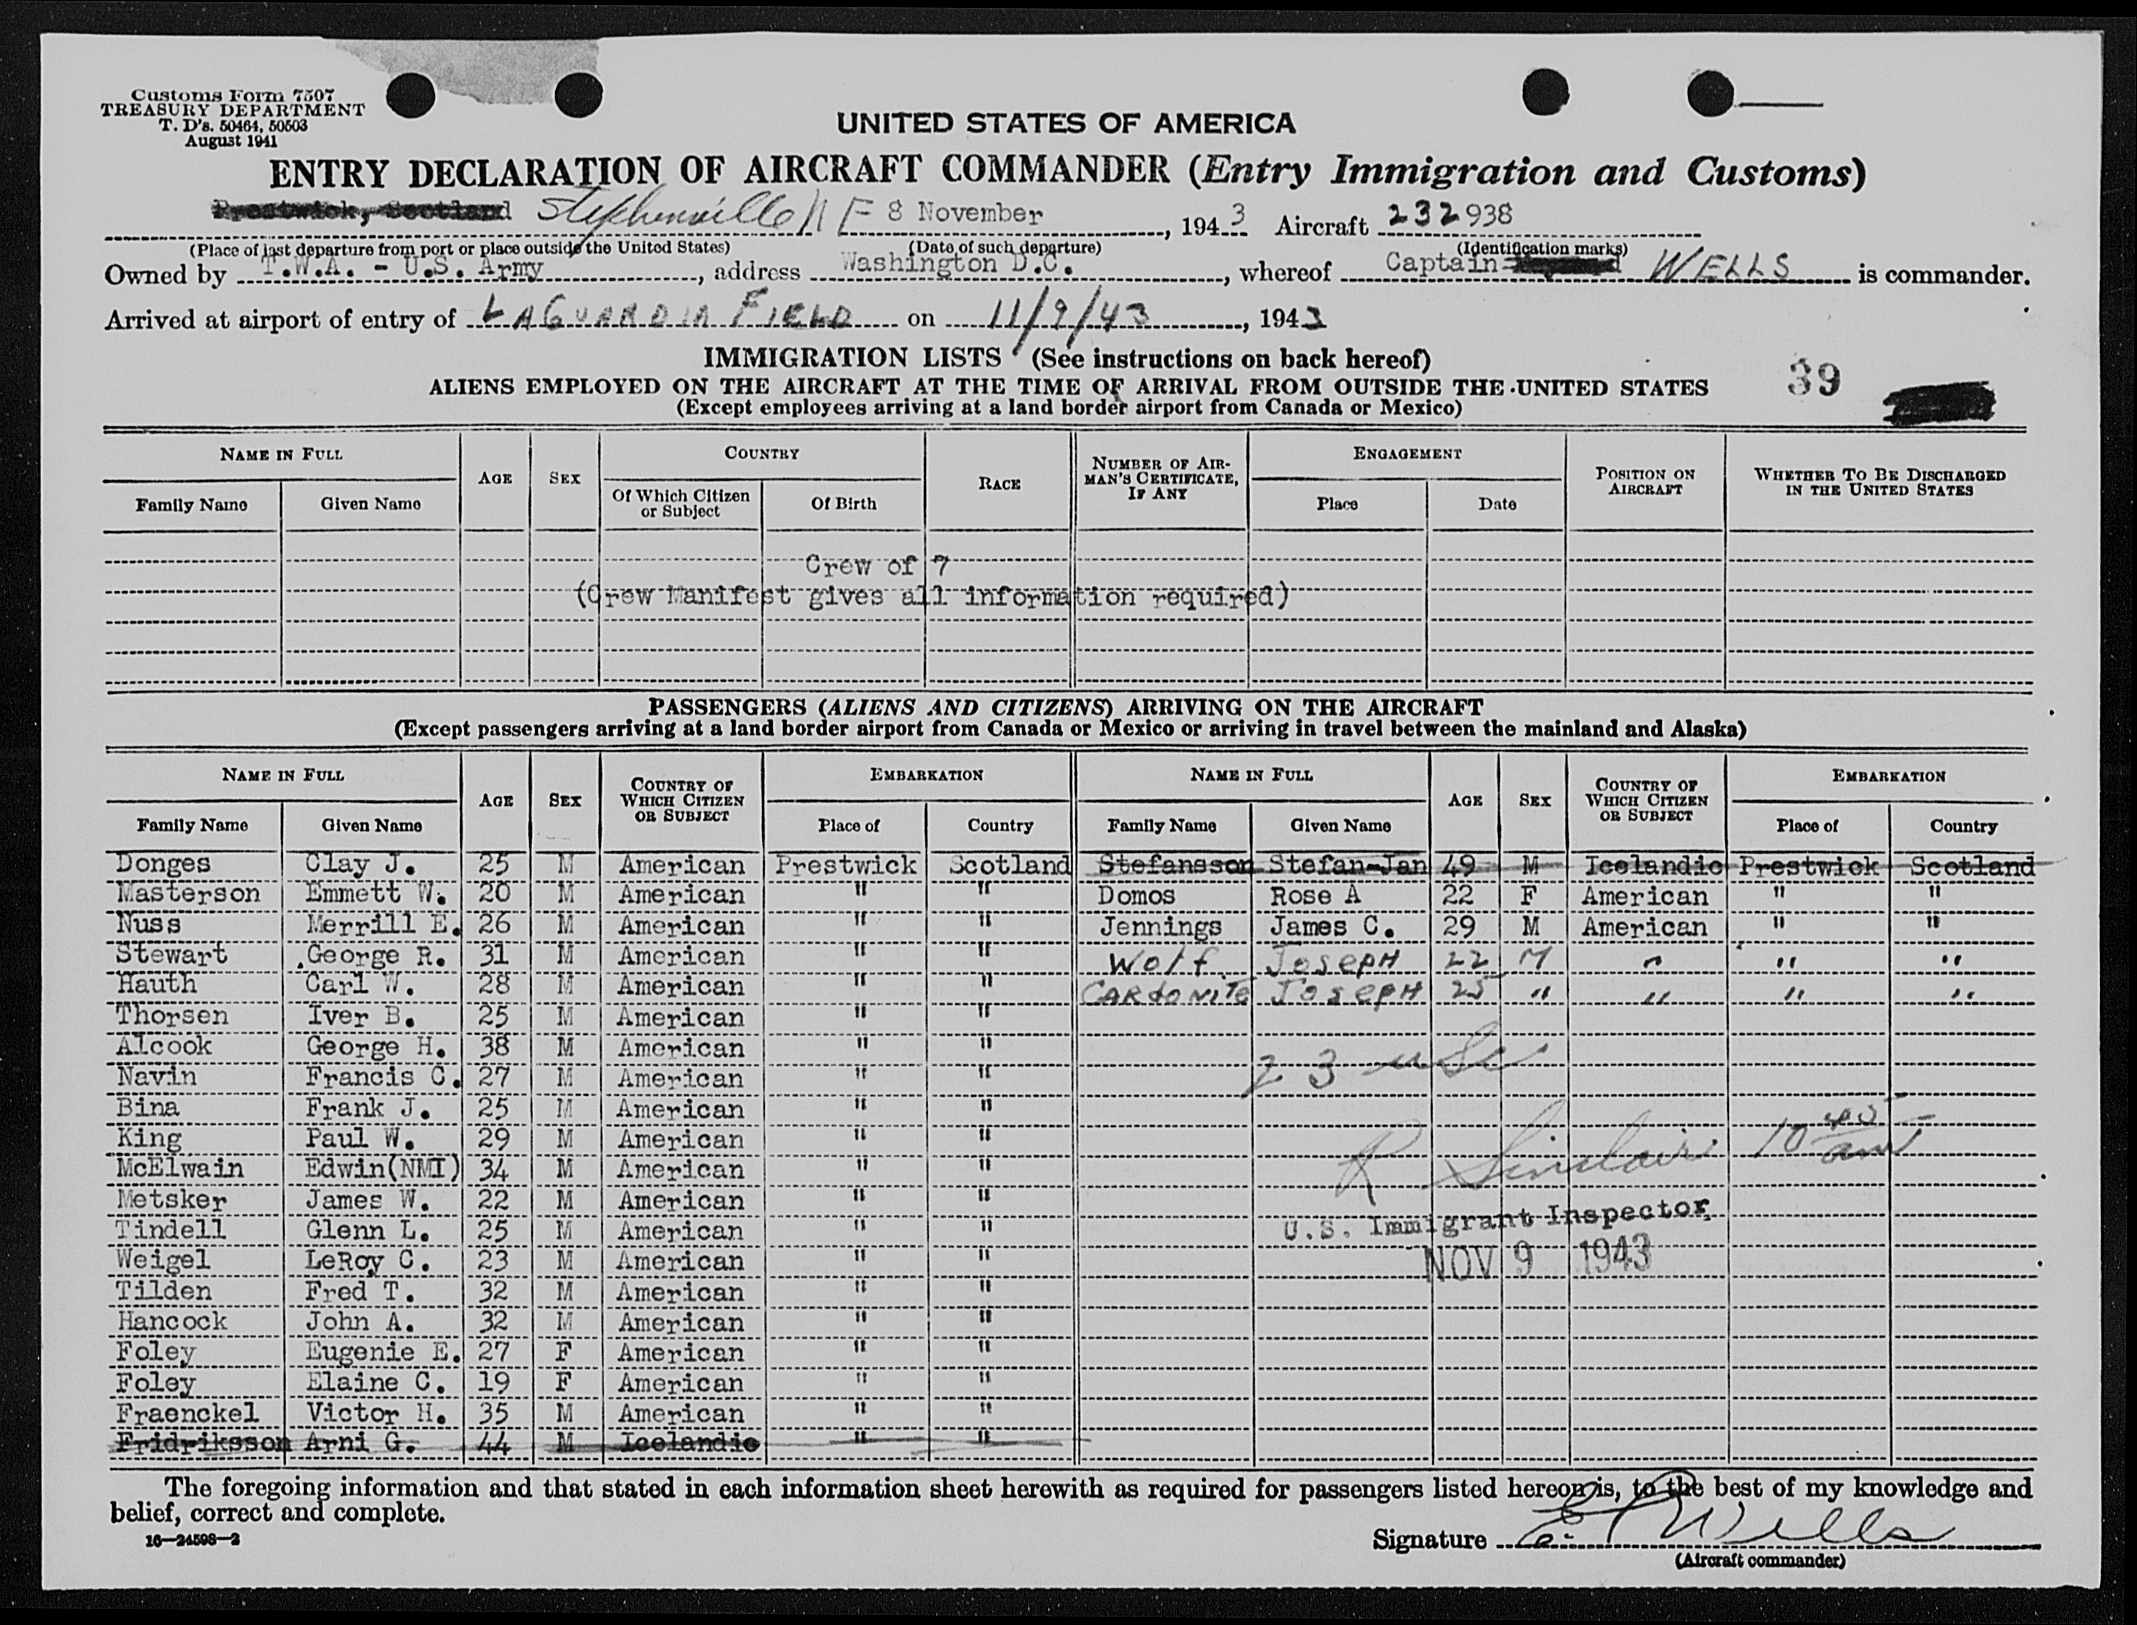 Customs Form 7507
TREASURY DEPARTMENT
T. D's. 50464, 50503
August 1941
UNITED STATES OF AMERICA
ENTRY DECLARATION OF AIRCRAFT COMMANDER (Entry Immigration and Customs)
Prestwick, Scotland Stephenville N F 8 November, 1943 Aircraft 232938
(Place of last departure from port or place outside the United States) (Date of such departure) (Identification marks)
Owned by T.W.A. - U.S. Army, address Washington D.C., whereof Captain WELLS is commander.
Arrived at airport of entry of LAGUARDIA FIELD on 11/9/43, 1943
IMMIGRATION LISTS (See instructions on back hereof)
ALIENS EMPLOYED ON THE AIRCRAFT AT THE TIME OF ARRIVAL FROM OUTSIDE THE UNITED STATES 39
(Except employees arriving at a land border airport from Canada or Mexico)
NAME IN FULL AGE SEX COUNTRY RACE NUMBER OF AIRMAN'S CERTIFICATE, IF ANY ENGAGEMENT POSITION ON AIRCRAFT WHETHER TO BE DISCHARGED IN THE UNITED STATES
Family Name Given Name Of Which Citizen or Subject Of Birth Place Date
Crew of 7
(Crew Manifest gives all information required)
PASSENGERS (ALIENS AND CITIZENS) ARRIVING ON THE AIRCRAFT
(Except passengers arriving at a land border airport from Canada or Mexico or arriving in travel between the mainland and Alaska)
NAME IN FULL AGE SEX COUNTRY OF WHICH CITIZEN OR SUBJECT EMBARKATION NAME IN FULL AGE SEX COUNTRY OF WHICH CITIZEN OR SUBJECT EMBARKATION
Family Name Given Name Place of Country Family Name Given Name Place of Country
Donges Clay J. 25 M American Prestwick Scotland Stefansson Stefan-Jan 49 M Icelandic Prestwick Scotland
Masterson Emmett W. 20 M American " " Domos Rose A 22 F American " "
Nuss Merrill E. 26 M American " " Jennings James C. 29 M American " "
Stewart George R. 31 M American " " Wolf Joseph 22 M " " "
Hauth Carl W. 28 M American " " CARDONITE Joseph 25 " " " "
Thorsen Iver B. 25 M American " "
Alcook George H. 38 M American " "
23 USC
Navin Francis C. 27 M American " "
Bina Frank J. 25 M American " "
King Paul W. 29 M American " "
R Sinclair 10 am
McElwain Edwin(NMI) 34 M American " "
Metsker James W. 22 M American " "
Tindell Glenn L. 25 M American " "
U.S. Immigrant Inspector
Weigel LeRoy C. 23 M American " "
NOV 9 1943
Tilden Fred T. 32 M American " "
Hancock John A. 32 M American " "
Foley Eugenie E. 27 F American " "
Foley Elaine C. 19 F American " "
Fraenckel Victor H. 35 M American " "
Fridriksson Arni G. 44 M Icelandic " "
The foregoing information and that stated in each information sheet herewith as required for passengers listed hereon is, to the best of my knowledge and
belief, correct and complete.
16—24598—2
Signature E. P. Wells
(Aircraft commander)